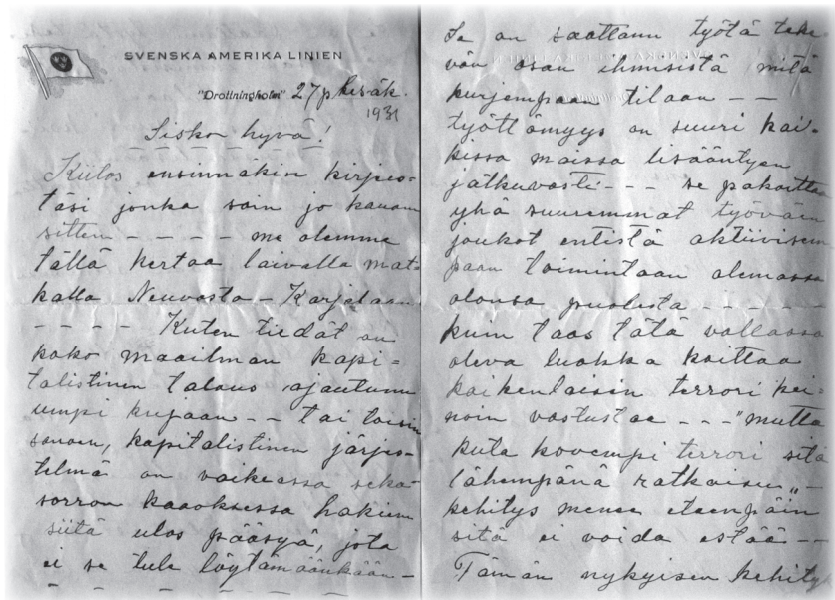 SVENSKA AMERIKA LINIEN
"Drottningholm" 27 p kesäk.
1931
Sisko hyvä!
Kiitos ensinnäkin kirjees-
täsi jonka sain jo kauan
sitten - - - - - me olemme
tällä kertaa laivalla mat-
kalla Neuvosto-Karjalaan
- - - - Kuten tiedät on
koko maailman kapi-
talistinen talous ajautunu
umpi kujaan - - tai toisin
sanoen, kapitalistinen järjes-
telmä on vaikeassa seka-
sorron kaaoksessa hakien
siitä ulos pääsyä, jota
ei se tule löytämäänkään -
Se on saattanu työtä teke-
vän osan ihmisistä mitä
kurjempaan tilaan - -
työttömyys on suuri kai-
kissa maissa lisääntyen
jatkuvasti - - - se pakoittaa
yhä suuremmat työväen
joukot entistä aktiivisem
paan toimintaan olemassa
olonsa puolesta - - - - - -
kuin taas tätä vallassa
oleva luokka koittaa
kaikenlaisin terrori kei-
noin vastustaa - - - "mutta
kuta kovempi terrori sitä
lähempänä ratkaisu" -
kehitys menee eteenpäin
sitä ei voida estää - -
Tämän nykyisen kehity